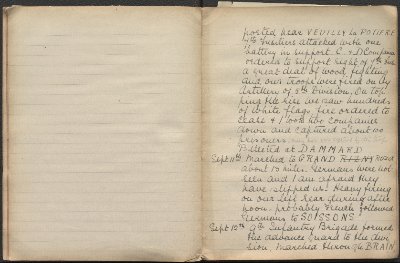 posted near VEUILLY la POTERIE
4th Fusiliers attacked with one
battery in support. C. & D Company
ordered to support right of 4th but
a great deal of wood fighting
and our troops were fired on by
Artillery of 5th Division. On top
ping the hill we saw hundreds
of white flags, fire ordered to
cease & I took two companies
down and captured about 100
prisoners
Billeted at DAMMARD
Sept 11th Marched to GRAND ROZOY ROAD
about 13 miles. Germans were not
seen and I am afraid they
have slipped us. Heavy firing
on our left rear during after
noon, probably French followed
Germans to SOISSONS
Sept 12th 9th Infantry Brigade formed
the advance guard to the divi
sion. Marched through BRAIN